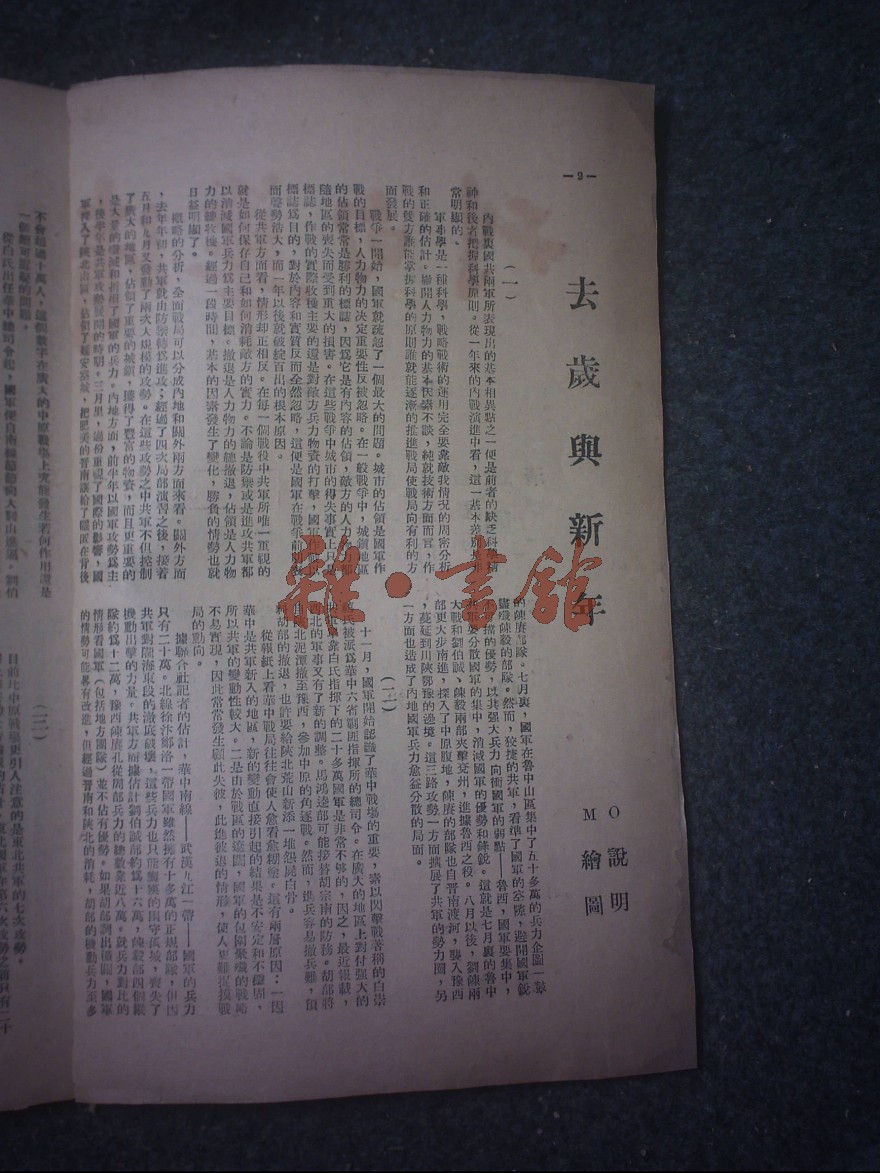 —2—
去歲與新年
O 說明
M 繪圖
(一)
內戰裏國共兩軍所表現出的基本相異點之一便是前者的缺乏科學精
神和後者把握科學原則。從一年來的內戰演進中看,這一基本差別是非
常明顯的。
軍事學是一種科學,戰略戰術的運用完全要靠敵我情況的周密分析
和正確的估計。撇開人力物力的基本因素不談,純就技術方面而言,作
戰的雙方誰能掌握科學的原則誰就能逐漸的推進戰局使戰局向有利的方
面發展。
戰爭一開始,國軍就疏忽了一個最大的問題。城市的佔領是國軍作
戰的目標,人力物力的決定重要性反被忽略。在一般戰爭中,城鎮地區
的佔領常常是勝利的標誌,因爲它是有內容的佔領,敵方的人力物力都
隨地區的喪失而受到重大的損害。在這些戰爭中城市的得失事實上只是
標誌,作戰的實際收穫主要的還是對敵方兵力物資的打擊,國軍作戰以
標誌爲目的,對於內容和實質反而全然忽略,這便是國軍在戰爭前期表
面聲勢浩大,而一年以後就破綻百出的根本原因。
從共軍方面看,情形却正相反。在每一個戰役中共軍所唯一重視的
就是如何保存自己和如何消耗敵方的實力。不論是防禦或是進攻共軍都
以消滅國軍兵力爲主要目標。撤退是人力物力的總撤退,佔領是人力物
力的總收穫。經過一段時間,基本的因素發生了變化,勝負的情勢也就
日益明顯了。
概略的分析,全面戰局可以分成內地和關外兩方面來看。關外方面
,去年年初,共軍就由防禦轉爲進攻;經過了四次局部演習之後,接着
五月和九月又發動了兩次大規模的攻勢。在這些攻勢之中共軍不但控制
了廣大的地區,佔領了重要的城鎮,獲得了豐富的物資,而且更重要的
是大量的消滅和折損了國軍的兵力。內地方面,前半年以國軍攻勢爲主
,後半年是共軍攻勢發展的時期。三月里,過份重視了國際的影響,國
軍突入了陝北山區,佔領了延安空城,把肥美的晋南讓給了躍伍在背後
的陳賡部隊。七月裏,國軍在魯中山區集中了五十多萬的兵力企圖一鼓
盡殲陳毅的部隊。然而,狡捷的共軍,看準了國軍的空隙,避開國軍銳
不可擋的優勢,以其強大兵力向衝國軍的弱點——魯西,國軍要集中,
共軍要分散國軍的集中,消滅國軍的優勢和鋒銳。這就是七月裏的魯中
大戰和劉伯誠、陳毅兩部夾擊兗州,進據魯西之役。八月以後,劉陳兩
部更大步南進,深入了中原腹地,陳賡的部隊也自晋南渡河,襲入豫西
,蔓延到川陝鄂豫的邊境。這三路攻勢一方面擴展了共軍的勢力圈,另
一方面也造成了內地國軍兵力愈益分散的局面。
(二)
十一月,國軍開始認識了華中戰場的重要,素以閃擊戰著稱的白崇
禧氏被派爲華中六省剿匪指揮所的總司令。在廣大的地區上對付強大的
共軍靠白氏指揮下的二十多萬國軍是非常不够的,因之,最近報載,
西北的軍事又有了新的調整。馬鴻逵部可能接替胡宗南的防務。胡部將
由陝北泥潭撤至豫西,參加中原的角逐戰。然而,進兵容易撤兵難,預
料胡部的撤退,也許要給陝北荒山新添一堆怨屍白骨。
從報紙上看華中戰局往往會使人愈看愈糊塗。這有兩層原因:一因
華中是共軍新入的地區,新的變動直接引起的結果是不安定和不穩固,
所以共軍的變動性較大。二是由於戰區的遼闊,國軍的包圍聚殲的戰略
不易實現,因此常常發生顧此失彼,此進彼退的情形,使人更難捉摸戰
局的動向。
據聯合社記者的估計,華中南線——武漢九江一帶——國軍的兵力
只有二十萬。北線徐汴鄭洛一帶國軍雖然擁有十多萬的正規部隊,但因
共軍對隴海東段的澈底破壞,這些兵力也只能龐獏的困守孤城,喪失了
機動出擊的力量。共軍方面據估計劉伯誠部約爲十六萬,陳毅部四個縱
隊約爲十二萬,豫西陳賡孔從周部兵力的總數靠近八萬。就兵力對比的
情形看國軍(包括地方團隊)並不佔有優勢。如果胡部調出潼關,國軍
的情勢可能畧有改進,但經過晋南和陝北的消耗,胡部的機動兵力至多
不會超過十萬人,這個數字在廣大的中原戰場上究能發生若何作用還是
一個頗可懷疑的問題。
從白氏出任華中總司令起,國軍便自南線
(三)
目前比中原戰場更引人注意的是東北共軍的七次攻勢。